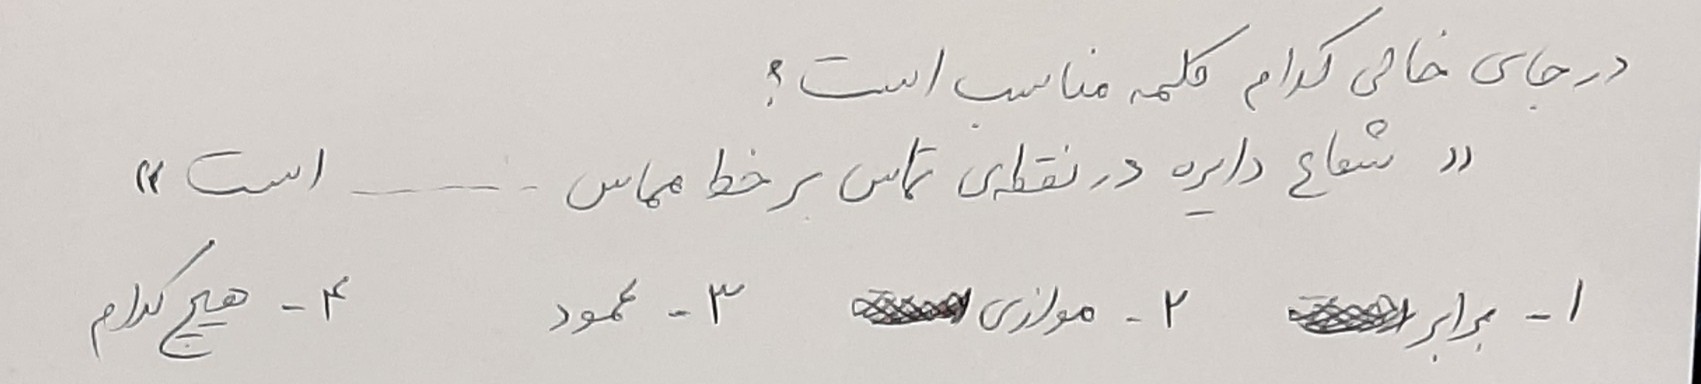 در جای خالی کدام کلمه مناسب است؟
« شعاع دایره در نقطه‌ی تماس بر خط مماس ------ است »
۱- برابر ۲- موازی ۳- عمود ۴- هیچ کدام